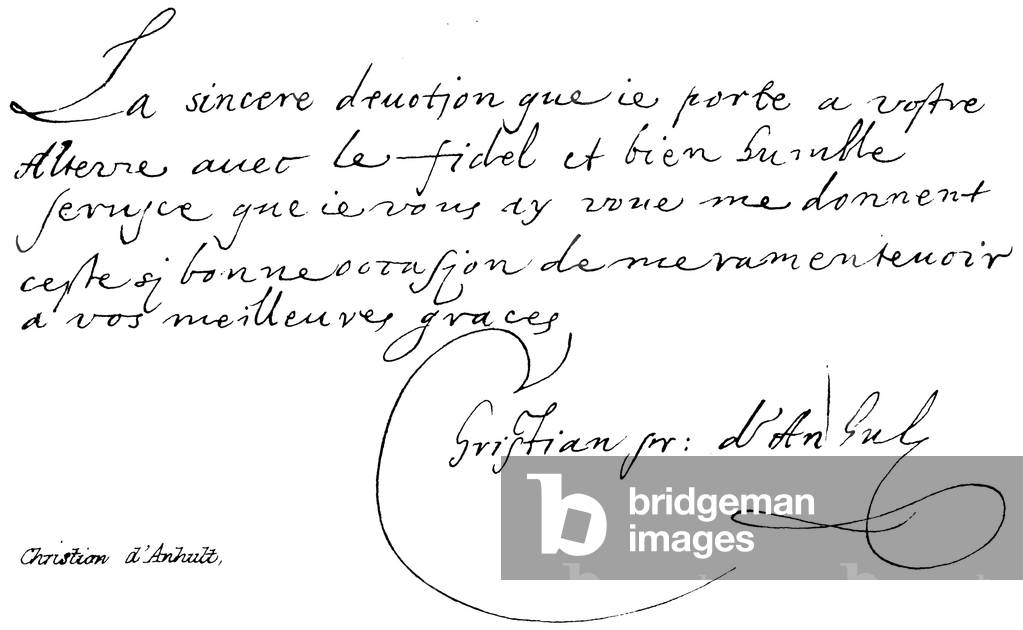 La sincere deuotjon que ie porte a vostre
Alterre auec le fidel et bien humble
seruyce que ie vous ay voue me donnent
ceste sj bonne occasjon de me ramenteuoir
a vos meilleures graces
Christian pr: d'Anhult
bridgeman
images
Christian d'Anhult,